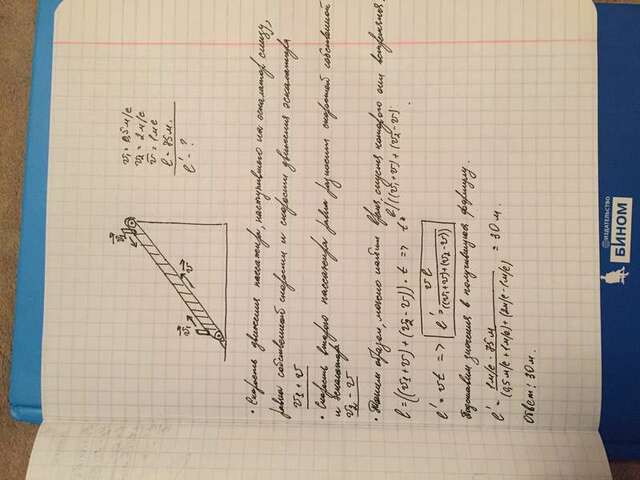 v₂
v₁
v
v₁ = 0,5 м/с
v₂ = 2 м/с
v = 1 м/с
l = 75 м.
l' - ?
• Скорость движения пассажира, наступившего на эскалатор снизу,
равна собственной скорости и скорости движения эскалатора
v₁ + v
• Скорость второго пассажира равна разности скоростей собственной
и эскалатора
v₂ - v
• Таким образом, можно найти время, спустя которого они встретятся.
l = ((v₁+v) + (v₂-v)) · t => t = l/((v₁+v) + (v₂-v))
l' = vt => l' = vl/((v₁+v)+(v₂-v))
Подставим значения в получившуюся формулу.
l' = 1м/с · 75 м/(0,5м/с + 1м/с) + (2м/с - 1м/с) = 30 м.
Ответ: 30 м.
ИЗДАТЕЛЬСТВО
БИНОМ